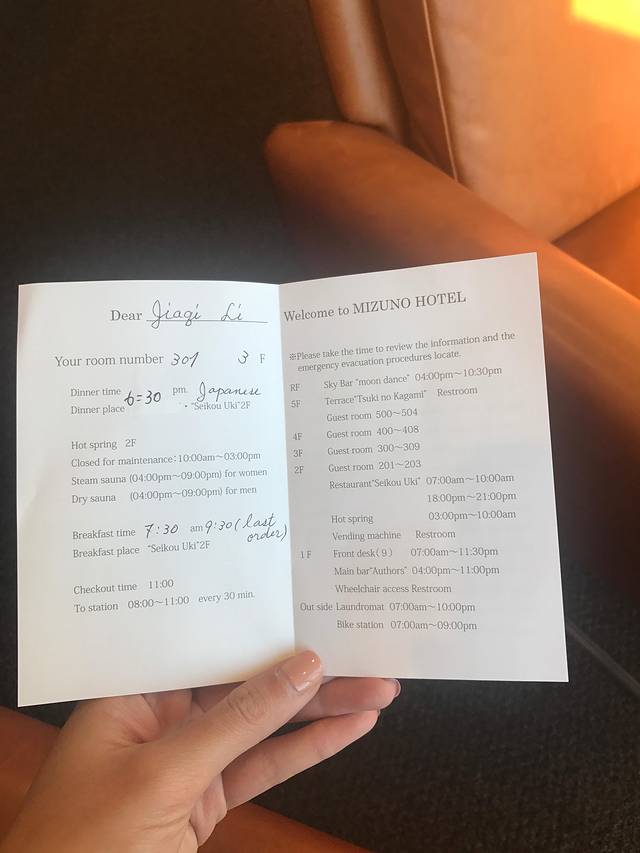 Dear Jiaqi Li
Your room number 301 3 F
Dinner time 6:30 pm. Japanese
Dinner place ・"Seikou Uki"2F
Hot spring 2F
Closed for maintenance:10:00am～03:00pm
Steam sauna (04:00pm～09:00pm) for women
Dry sauna (04:00pm～09:00pm) for men
Breakfast time 7:30 am 9:30 (last order)
Breakfast place "Seikou Uki"2F
Checkout time 11:00
To station 08:00～11:00 every 30 min.
Welcome to MIZUNO HOTEL
※Please take the time to review the information and the
emergency evacuation procedures locate.
RF Sky Bar "moon dance" 04:00pm～10:30pm
5F Terrace"Tsuki no Kagami" Restroom
Guest room 500～504
4F Guest room 400～408
3F Guest room 300～309
2F Guest room 201～203
Restaurant"Seikou Uki" 07:00am～10:00am
18:00pm～21:00pm
Hot spring 03:00pm～10:00am
Vending machine Restroom
1F Front desk(9) 07:00am～11:30pm
Main bar"Authors" 04:00pm～11:00pm
Wheelchair access Restroom
Out side Laundromat 07:00am～10:00pm
Bike station 07:00am～09:00pm